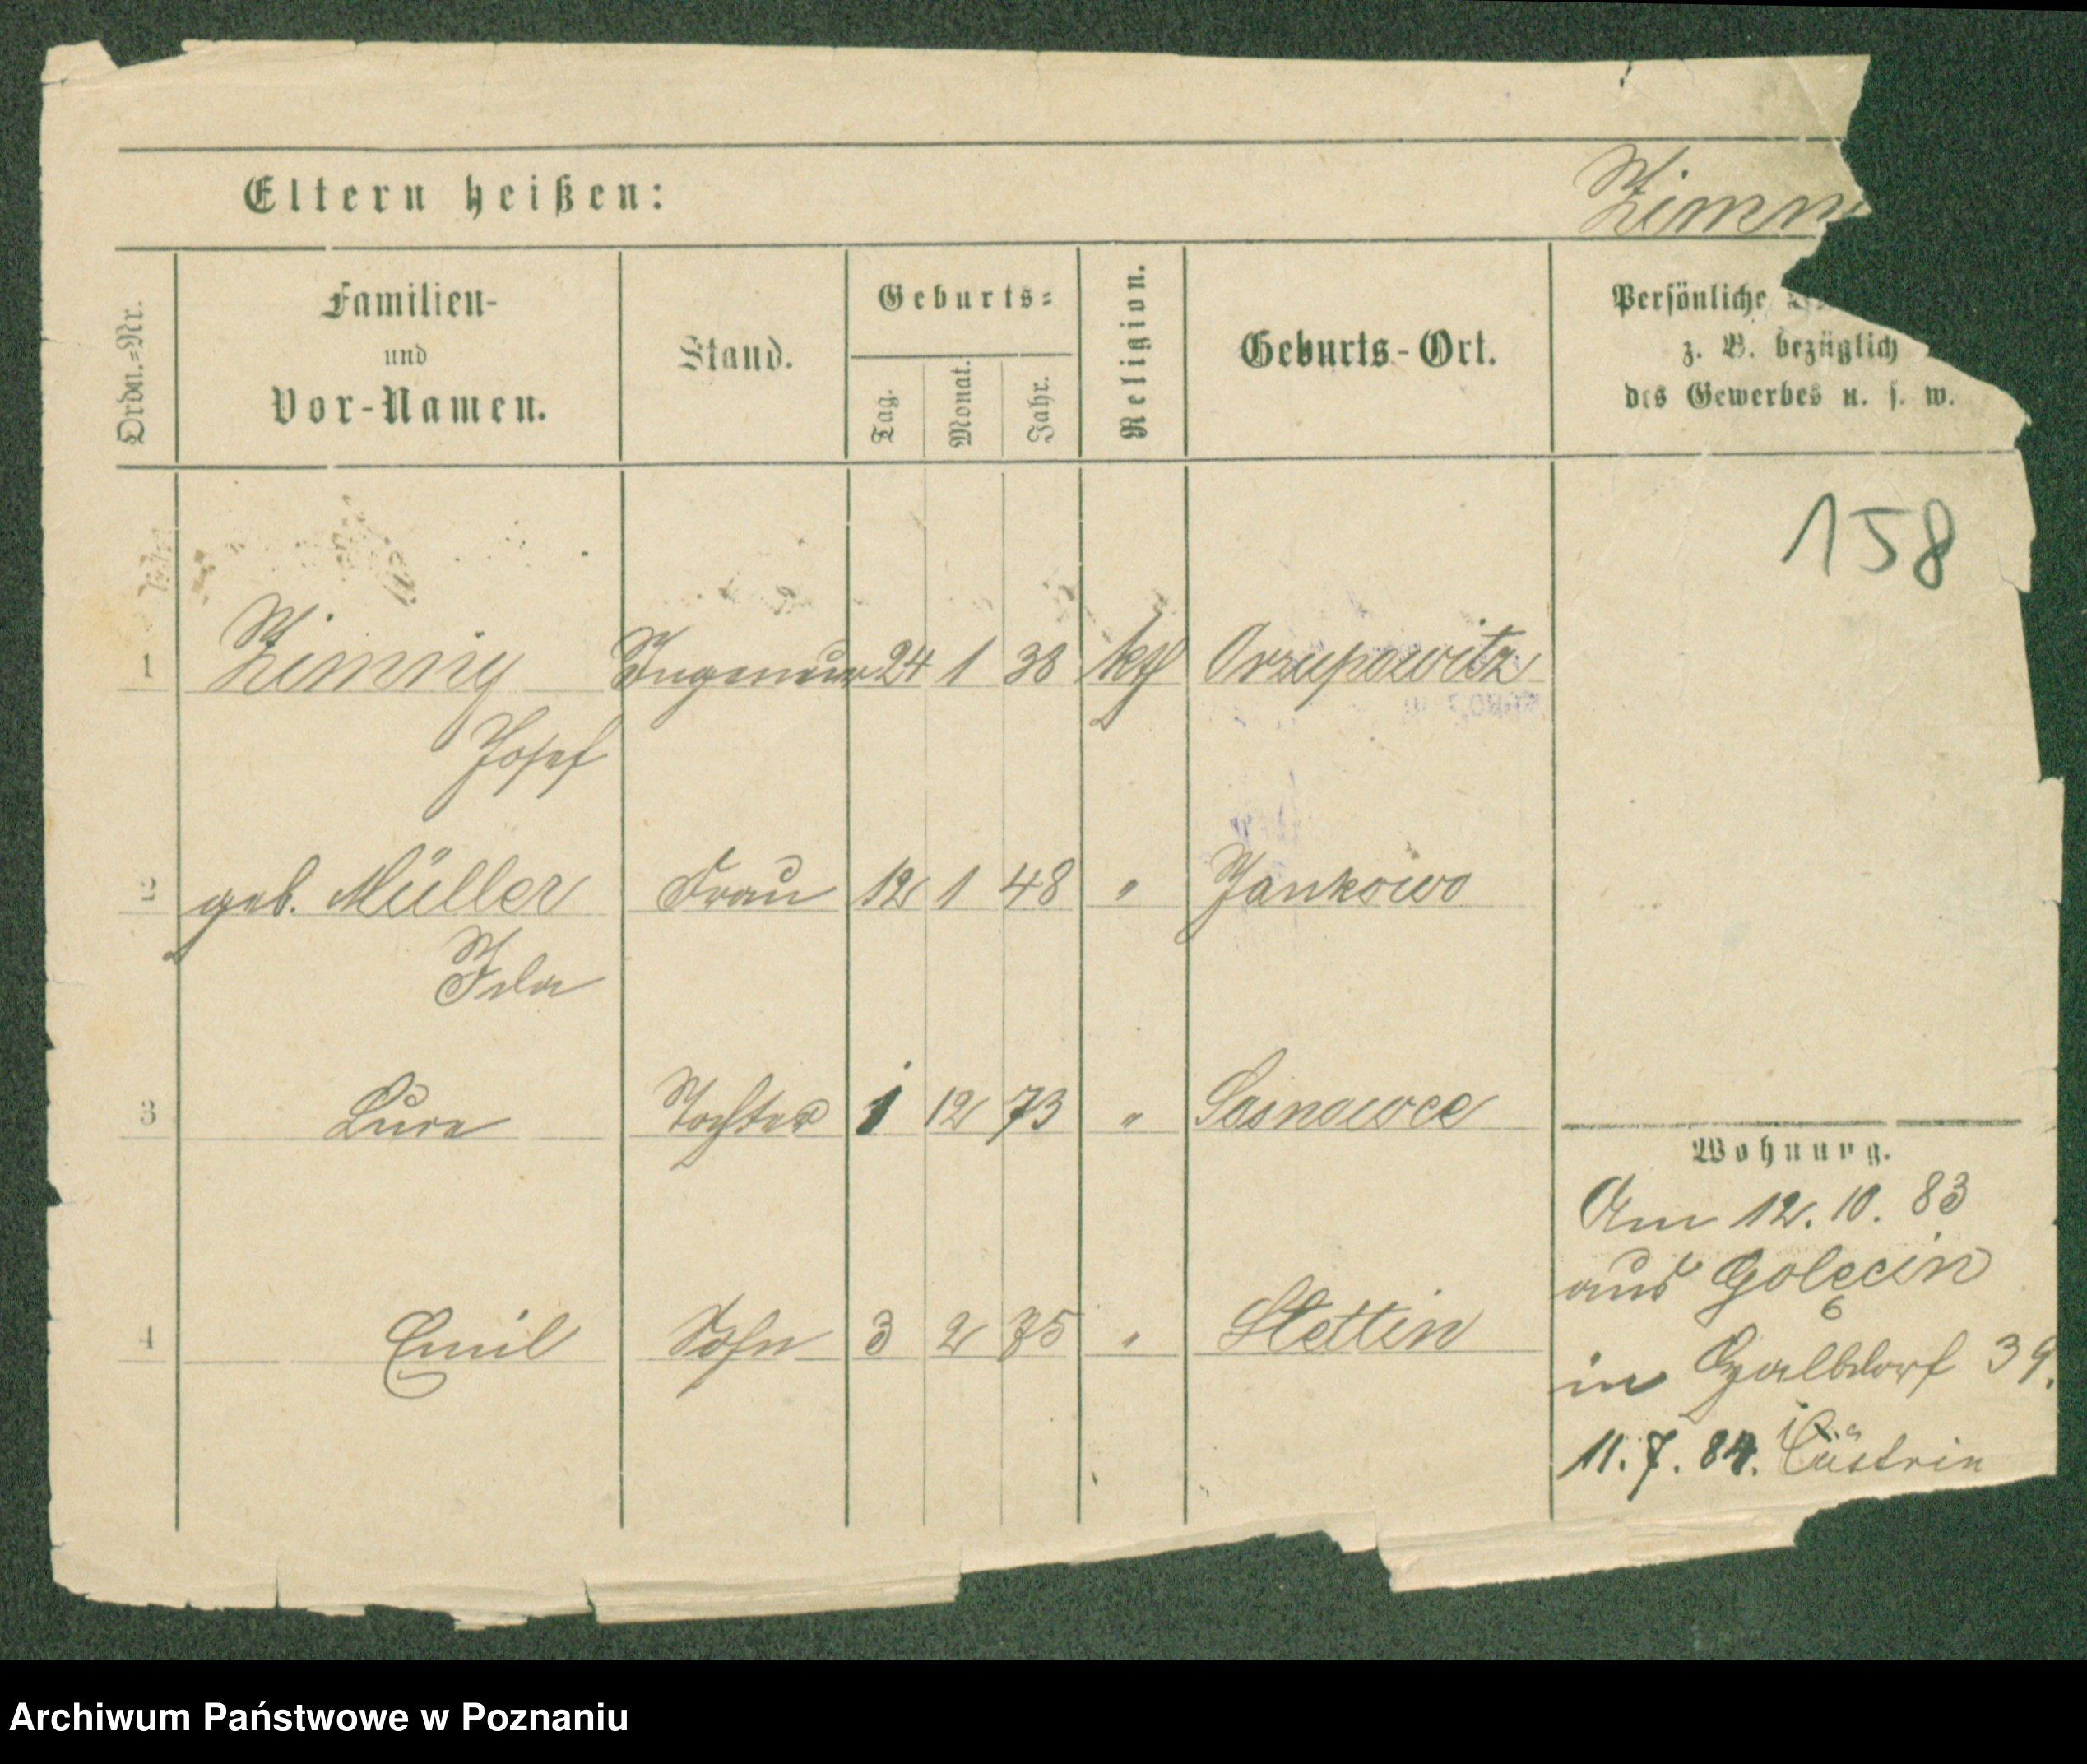 Eltern heißen:
Zimn
Ordn.=Nr.
Familien-
und
Vor-Namen.
Stand.
Geburts=
Tag.
Monat.
Jahr.
Religion.
Geburts-Ort.
Persönliche
z. B. bezüglich
des Gewerbes u. s. w.
158
1 Zimny Ingenieur 24 1 38 kth Orzupowitz
Josef
2 geb. Müller Frau 12 1 48 " Jankowo
Ida
3 Tochter 1 12 73 " Sosnowce
Wohnung.
Am 12. 10. 83
aus Golęcin
6
4 Emil Sohn 3 2 75 " Stettin
in Halbdorf 39.
11. 7. 84. Cüstrin
Archiwum Państwowe w Poznaniu